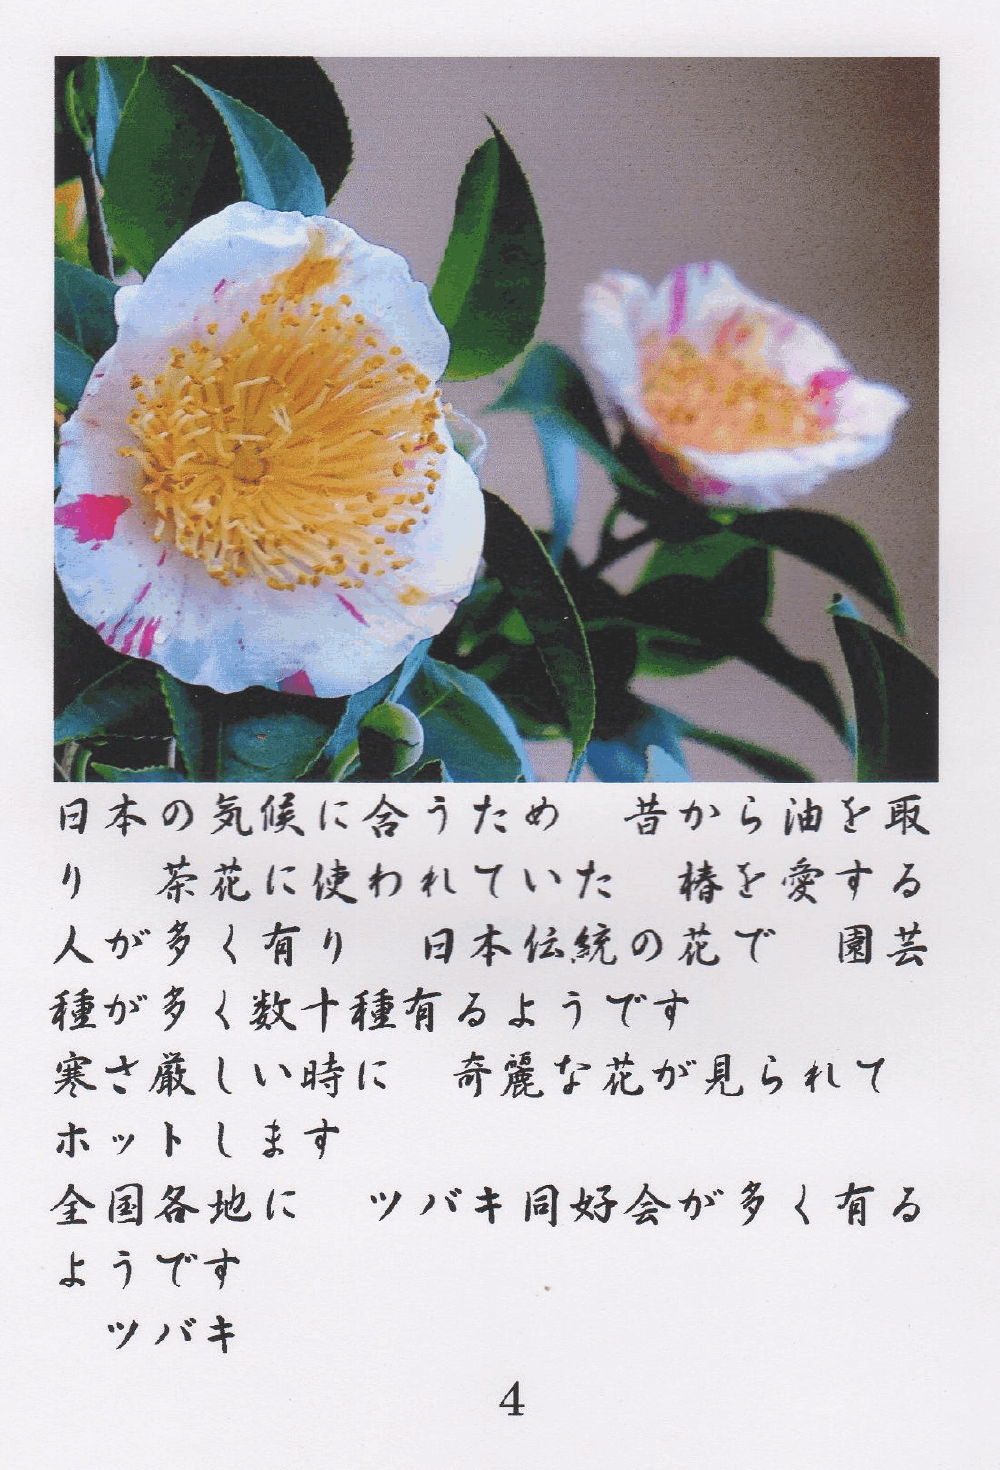 日本の気候に合うため　昔から油を取
り　茶花に使われていた　椿を愛する
人が多く有り　日本伝統の花で　園芸
種が多く数十種有るようです
寒さ厳しい時に　奇麗な花が見られて
ホットします
全国各地に　ツバキ同好会が多く有る
ようです
ツバキ
4